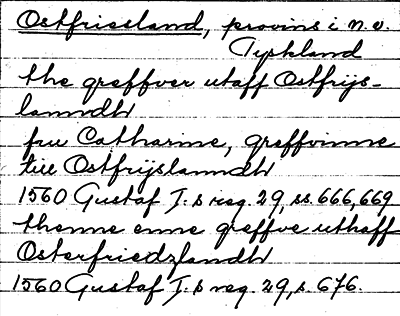 Ostfriesland, provins i n.v.
Tyskland
the greffver utaff Ostfrijs-
lanndh
fru Catharine, greffvinne
till Ostfrijslanndh
1560 Gustaf I:s reg. 29, ss. 666, 669
thenne enne greffve uthaff
Osterfriedzlandh
1560 Gustaf I:s reg. 29, s. 676.